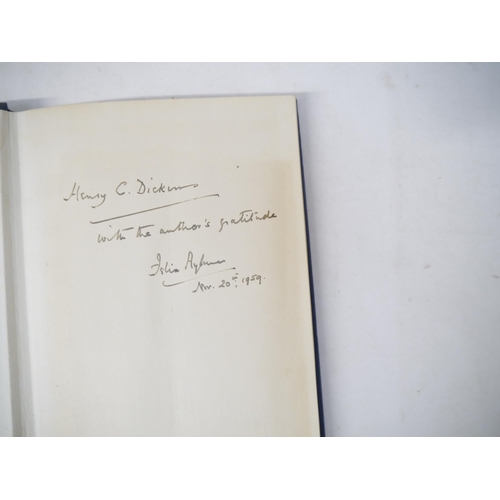 Henry C. Dickens
with the author's gratitude
Felix Aylmer
Nov. 20th, 1959.